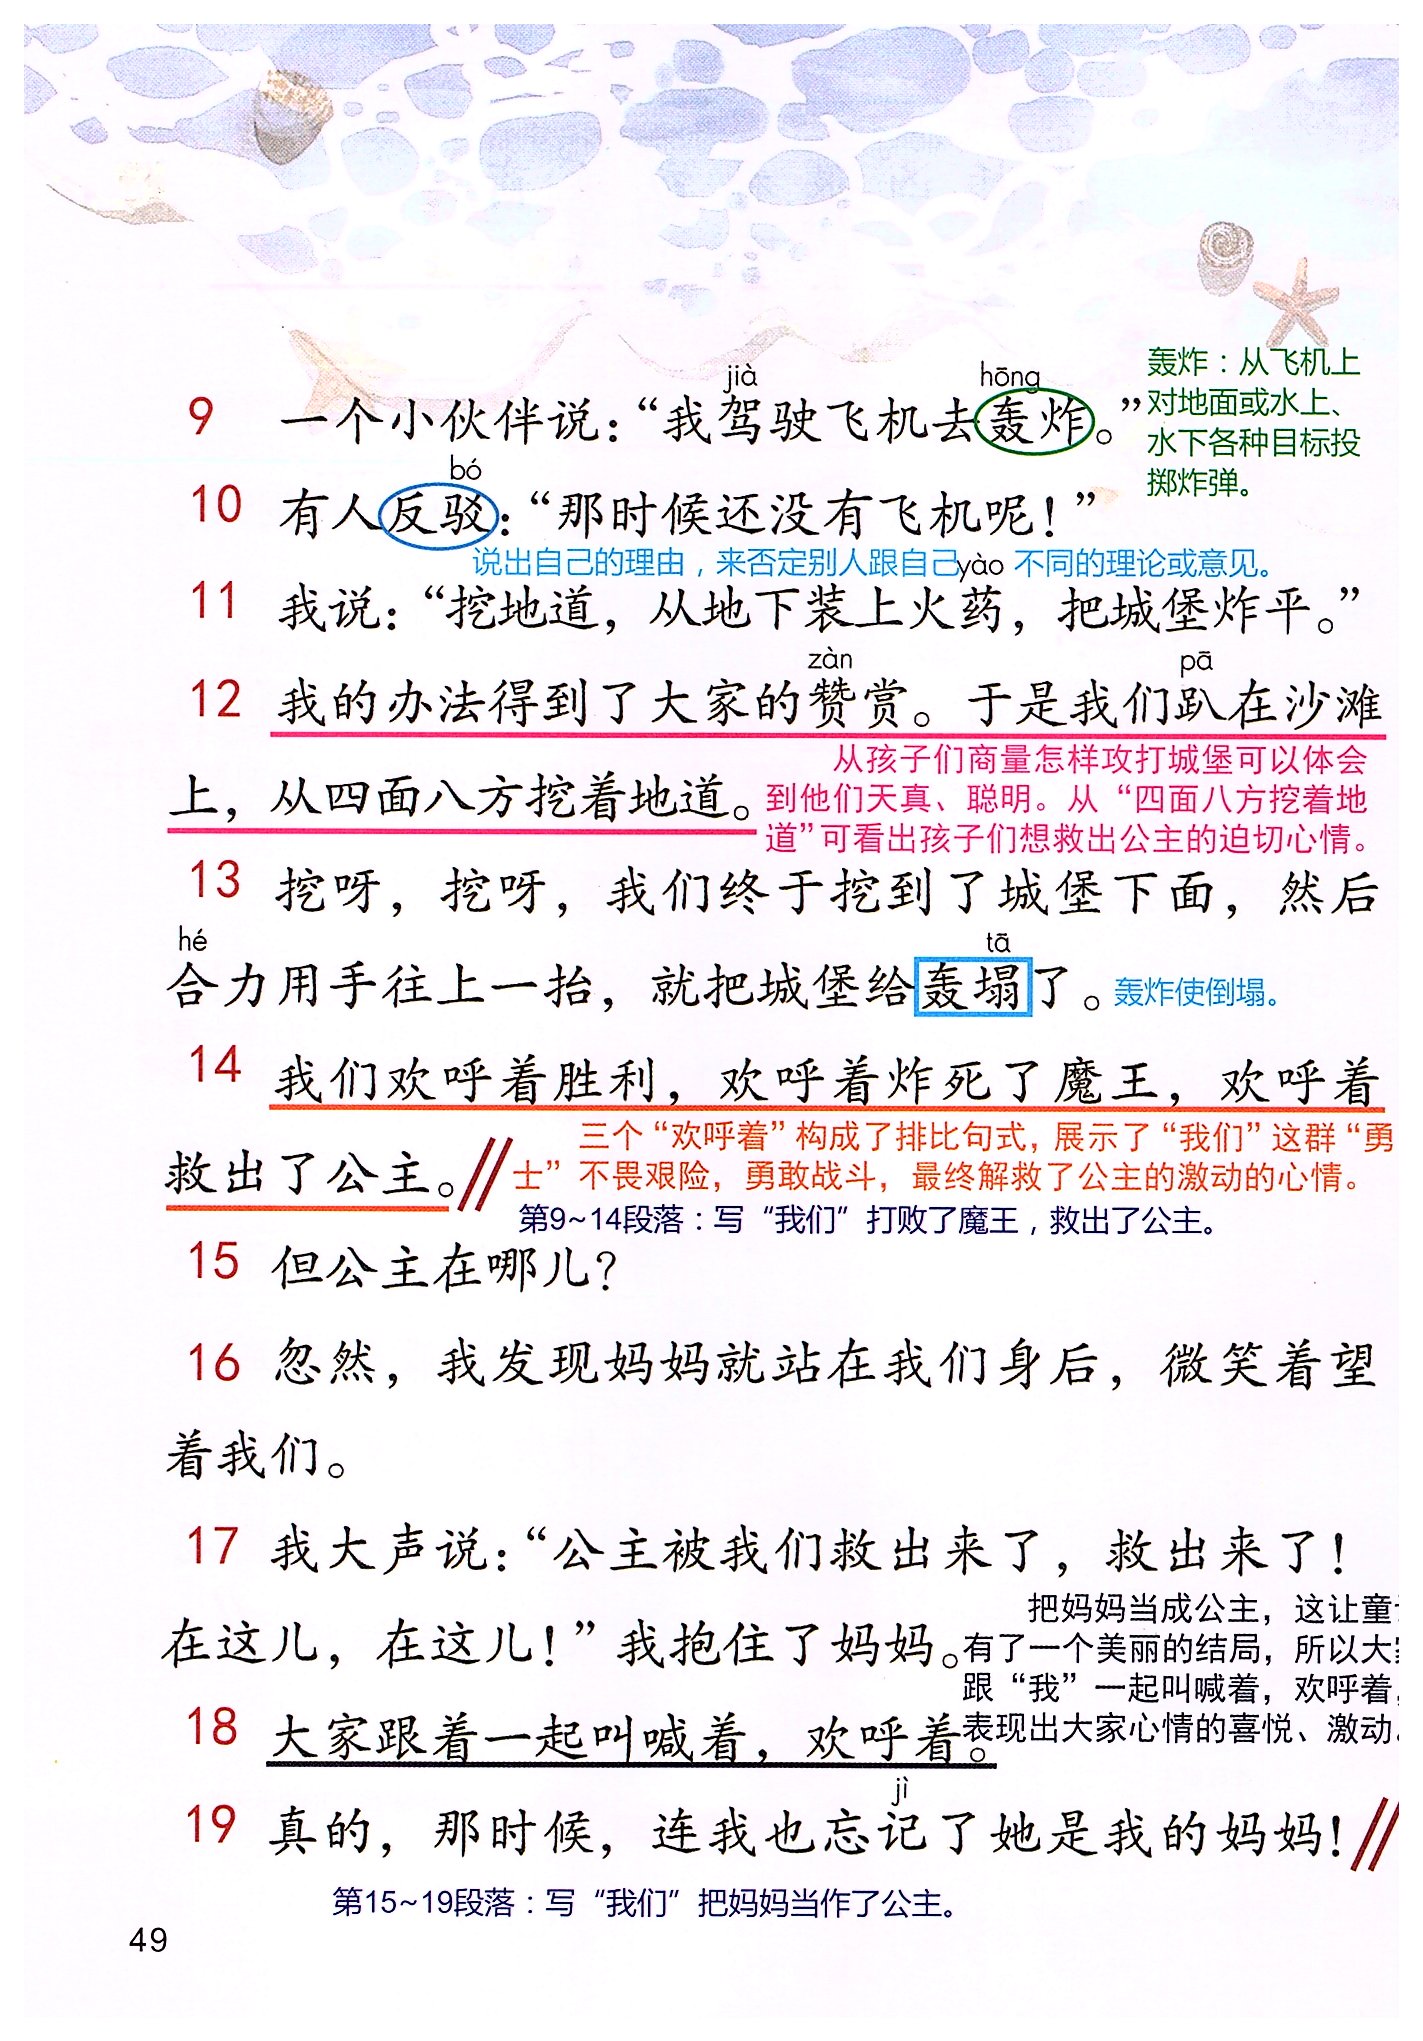 jià hōng
9 一个小伙伴说：“我驾驶飞机去轰炸。”
轰炸：从飞机上
对地面或水上、
水下各种目标投
掷炸弹。
bó
10 有人反驳：“那时候还没有飞机呢！”
说出自己的理由，来否定别人跟自己 不同的理论或意见。
yào
11 我说：“挖地道，从地下装上火药，把城堡炸平。”
zàn pā
12 我的办法得到了大家的赞赏。于是我们趴在沙滩
上，从四面八方挖着地道。
从孩子们商量怎样攻打城堡可以体会
到他们天真、聪明。从“四面八方挖着地
道”可看出孩子们想救出公主的迫切心情。
13 挖呀，挖呀，我们终于挖到了城堡下面，然后
hé tā
合力用手往上一抬，就把城堡给轰塌了。
轰炸使倒塌。
14 我们欢呼着胜利，欢呼着炸死了魔王，欢呼着
救出了公主。
三个“欢呼着”构成了排比句式，展示了“我们”这群“勇
士”不畏艰险，勇敢战斗，最终解救了公主的激动的心情。
第9~14段落：写“我们”打败了魔王，救出了公主。
15 但公主在哪儿？
16 忽然，我发现妈妈就站在我们身后，微笑着望
着我们。
17 我大声说：“公主被我们救出来了，救出来了！
在这儿，在这儿！”我抱住了妈妈。
把妈妈当成公主，这让童
有了一个美丽的结局，所以大
跟“我”一起叫喊着，欢呼着，
表现出大家心情的喜悦、激动。
18 大家跟着一起叫喊着，欢呼着。
jì
19 真的，那时候，连我也忘记了她是我的妈妈！
第15~19段落：写“我们”把妈妈当作了公主。
49